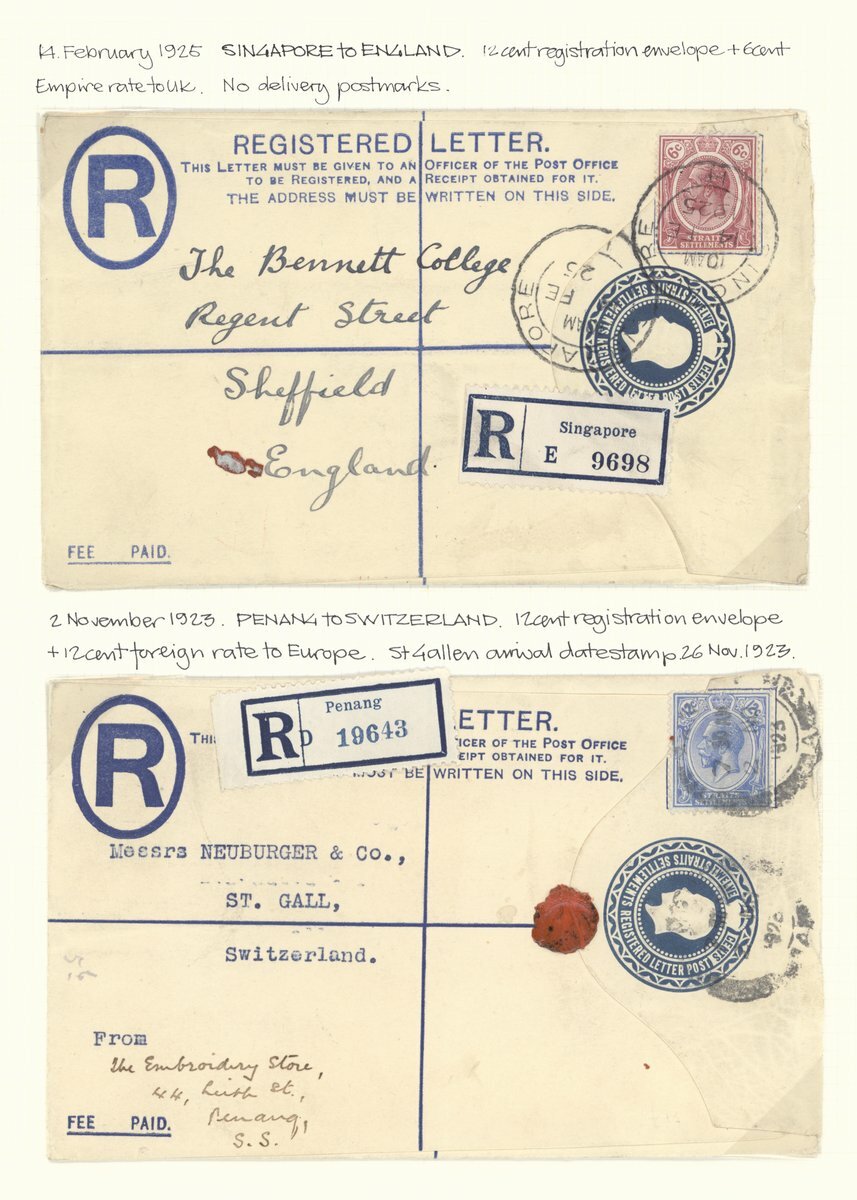 14. February 1925 SINGAPORE to ENGLAND. 12 cent registration envelope + 6 cent
Empire rate to UK. No delivery postmarks.
R
REGISTERED LETTER.
THIS LETTER MUST BE GIVEN TO AN OFFICER OF THE POST OFFICE
TO BE REGISTERED, AND A RECEIPT OBTAINED FOR IT.
THE ADDRESS MUST BE WRITTEN ON THIS SIDE.
6c 6c
STRAITS
SETTLEMENTS
10 AM
APORE
AM
FE
25
The Bennett College
Regent Street
Sheffield
England
STRAITS SETTLEMENTS REGISTERED LETTER POST CENTS
R Singapore
E 9698
FEE PAID.
2 November 1923. PENANG to SWITZERLAND. 12 cent registration envelope
+ 12 cent foreign rate to Europe. St Gallen arrival datestamp 26 Nov. 1923.
R
R Penang
D 19643
ETTER.
THI
FICER OF THE POST OFFICE
CEIPT OBTAINED FOR IT.
MUST BE WRITTEN ON THIS SIDE.
STRAITS
SETTLEMENTS
1923
Messrs NEUBURGER & Co.,
ST. GALL,
Switzerland.
STRAITS SETTLEMENTS REGISTERED LETTER POST CENTS
From
The Embroidery Store,
44, Leith St.,
Penang,
S.S.
FEE PAID.